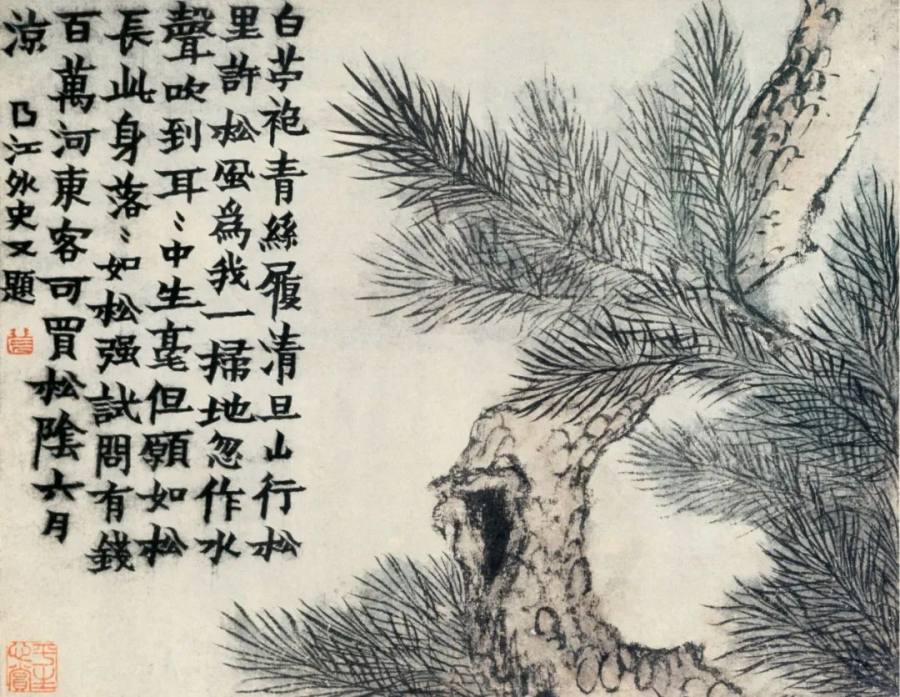 白苧袍青絲履清旦山行松
里許松風為我一掃地忽作水
聲吹到耳〻中生毫但願如松
長此身落〻如松强試問有錢
百萬河東客可買松陰六月
涼 曲江外史又題
平生心賞